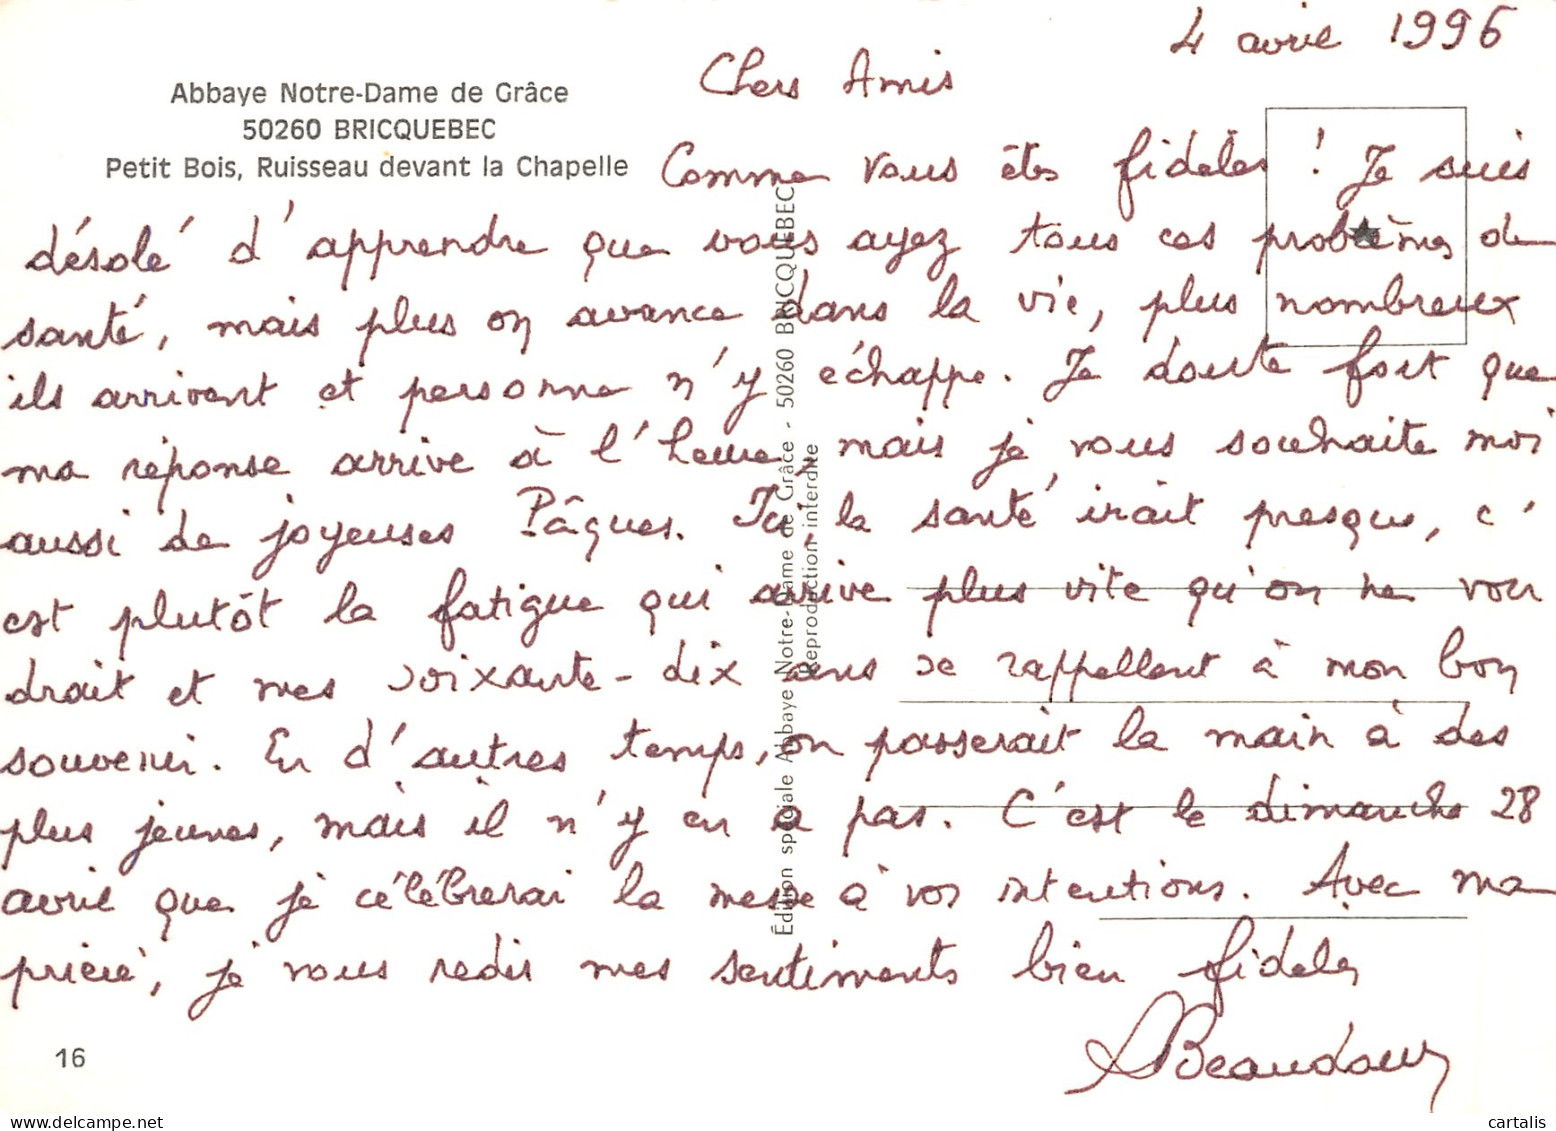 4 avril 1996
Chers Amis
Abbaye Notre-Dame de Grâce
50260 BRICQUEBEC
Petit Bois, Ruisseau devant la Chapelle
Comme vous êtes fidèles ! Je suis
désolé d'apprendre que vous ayez tous ces problèmes de
santé, mais plus on avance dans la vie, plus nombreux
ils arrivent et personne n'y échappe. Je doute fort que
ma réponse arrive à l'heure, mais je vous souhaite moi
aussi de joyeuses Pâques. Ici, la santé irait presque, c'
est plutôt la fatigue qui arrive plus vite qu'on ne vou
drait et mes soixante-dix ans se rappellent à mon bon
souvenir. En d'autres temps, on passerait la main à des
plus jeunes, mais il n'y en a pas. C'est le dimanche 28
avril que je célébrerai la messe à vos intentions. Avec ma
prière, je vous redis mes sentiments bien fidèles
Beaudour
Édition spéciale Abbaye Notre-Dame de Grâce - 50260 BRICQUEBEC
Reproduction interdite
16
cartalis